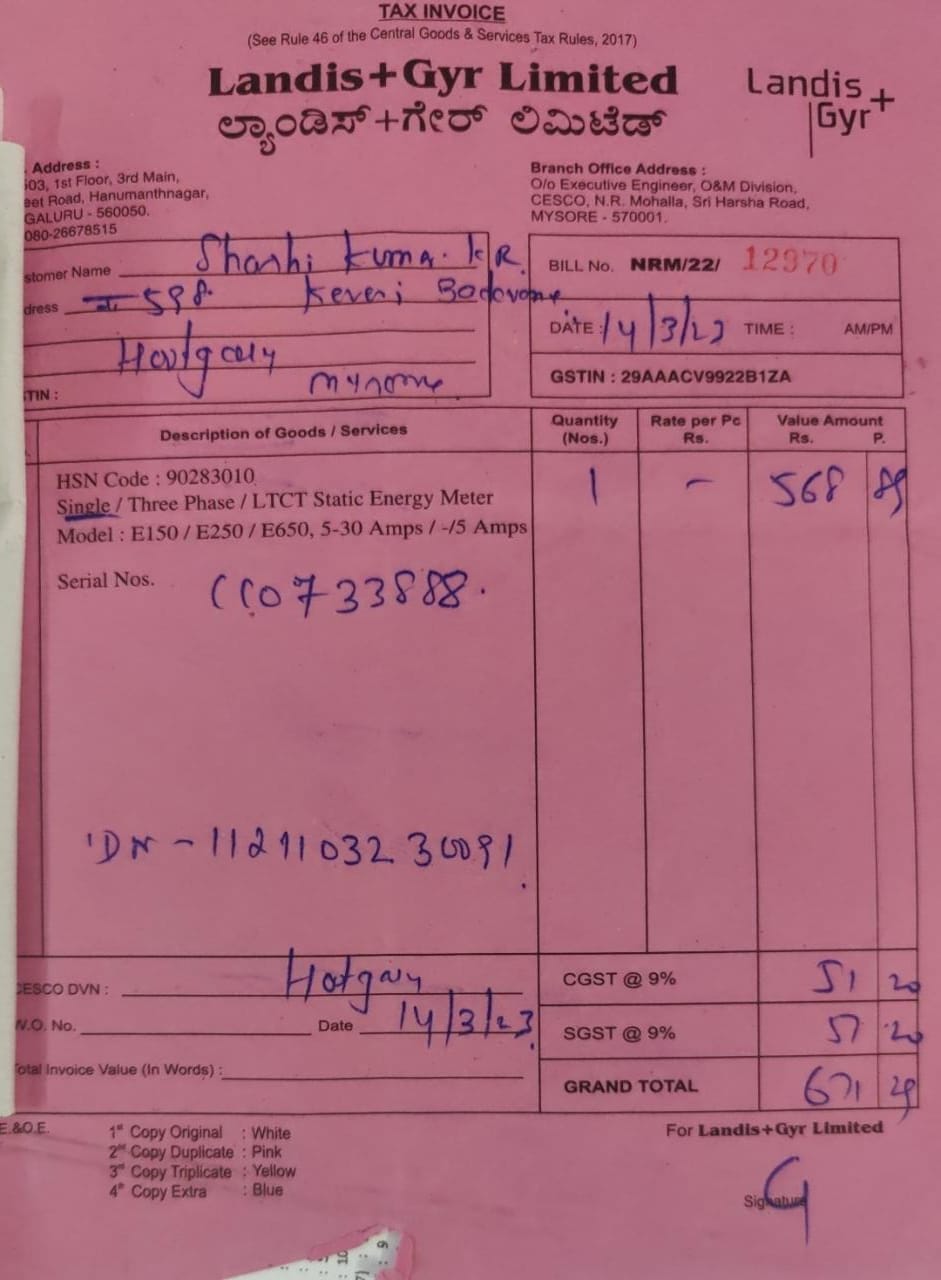 TAX INVOICE
(See Rule 46 of the Central Goods & Services Tax Rules, 2017)
Landis+Gyr Limited
ಲ್ಯಾಂಡಿಸ್+ಗೇರ್ ಲಿಮಿಟೆಡ್
Landis
Gyr+
Address :
03, 1st Floor, 3rd Main,
eet Road, Hanumanthnagar,
GALURU - 560050.
080-26678515
Branch Office Address :
O/o Executive Engineer, O&M Division,
CESCO, N.R. Mohalla, Sri Harsha Road,
MYSORE - 570001.
stomer Name Shashi Kumar K R
dress 598 Keveri
TIN :
BILL No. NRM/22/ 12970
DATE : 14/3/23 TIME : AM/PM
GSTIN : 29AAACV9922B1ZA
Description of Goods / Services Quantity (Nos.) Rate per Pc Rs. Value Amount Rs. P.
HSN Code : 90283010 1 - 568 89
Single / Three Phase / LTCT Static Energy Meter
Model : E150 / E250 / E650, 5-30 Amps / -/5 Amps
Serial Nos. CC0733888.
DN - 11211032 30091
CESCO DVN :
W.O. No. Date 14/3/23
otal Invoice Value (In Words) :
CGST @ 9% 51 20
SGST @ 9% 51 20
GRAND TOTAL 671 29
E.&O.E.
1st Copy Original : White
2nd Copy Duplicate : Pink
3rd Copy Triplicate : Yellow
4th Copy Extra : Blue
For Landis+Gyr Limited
Signature